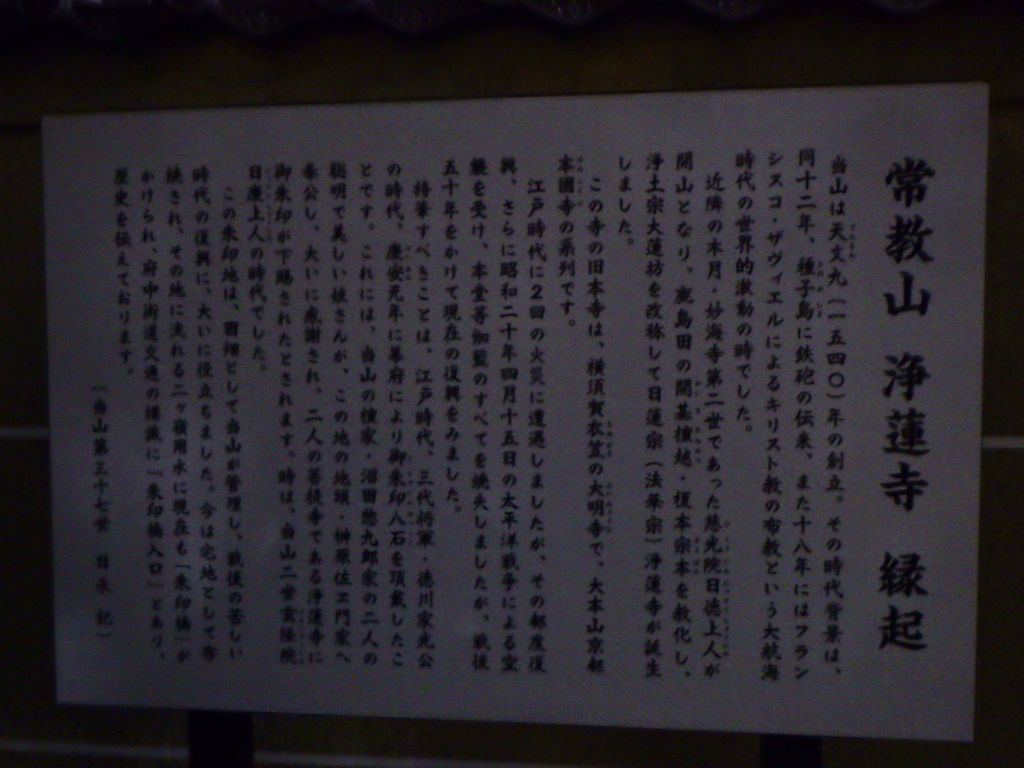 常教山 浄蓮寺 縁起
当山は天文九(一五四〇)年の創立。その時代背景は、
同十二年、種子島に鉄砲の伝来、また十八年にはフラン
シスコ・ザヴィエルによるキリスト教の布教という大航海
時代の世界的激動の時でした。
近隣の木月・妙海寺第二世であった慈光院日徳上人が
開山となり、鹿島田の開基檀越・榎本宗本を教化し、
浄土宗大蓮坊を改称して日蓮宗(法華宗)浄蓮寺が誕生
しました。
この寺の旧本寺は、横須賀衣笠の大明寺で、大本山京都
本圀寺の系列です。
江戸時代に2回の火災に遭遇しましたが、その都度復
興、さらに昭和二十年四月十五日の太平洋戦争による空
襲を受け、本堂等伽藍のすべてを焼失しましたが、戦後
五十年をかけて現在の復興をみました。
特筆すべきことは、江戸時代、三代将軍・徳川家光公
の時代、慶安元年に幕府により御朱印八石を頂戴したこ
とです。これには、当山の檀家・沼田惣九郎家の二人の
聡明で美しい娘さんが、この地の地頭・榊原佐ヱ門家へ
奉公し、大いに感謝され、二人の菩提寺である浄蓮寺に
御朱印が下賜されたとされます。時は、当山二世玄隆院
日慶上人の時代でした。
この朱印地は、田畑として当山が管理し、戦後の苦しい
時代の復興に、大いに役立ちました。今は宅地として布
施され、その地に流れる二ヶ領用水に現在も「朱印橋」が
かけられ、府中街道交通の標識に「朱印橋入口」とあり、
歴史を伝えております。
(当山第三十七世 日 記)